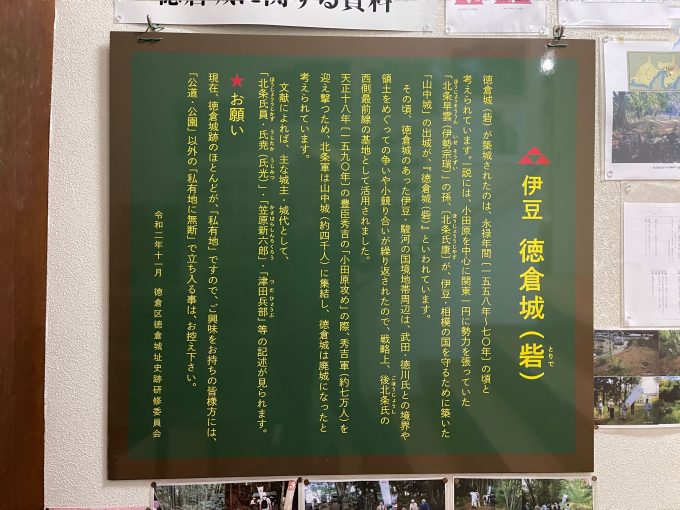 徳倉城に関する資料
伊豆　徳倉城(砦)
とりで
徳倉城(砦)が築城されたのは、永禄年間(一五五八年~七〇年)の頃と
考えられています。一説には、小田原を中心に関東一円に勢力を張っていた
「北条早雲(伊勢宗瑞)」の孫、「北条氏康」が、伊豆・相模の国を守るために築いた
ほうじょうそううん　いせ そうずい　ほうじょううじやす
「山中城」の出城が、『徳倉城(砦)』といわれています。
その頃、徳倉城のあった伊豆・駿河の国境地帯周辺は、武田・徳川氏との境界や
領土をめぐっての争いや小競り合いが繰り返されたので、戦略上、後北条氏の
ごほうじょうし
西側最前線の基地として活用されました。
天正十八年(一五九〇年)の豊臣秀吉の「小田原攻め」の際、秀吉軍(約七万人)を
迎え撃つため、北条軍は山中城(約四千人)に集結し、徳倉城は廃城になったと
考えられています。
文献によれば、主な城主・城代として、
「北条氏員・氏尭(氏光)」・「笠原新六郎」・「津田兵部」等の記述が見られます。
ほうじょううじかず　うじたか　うじみつ　かさはらしんろくろう　つだ ひょうぶ
★お願い
現在、徳倉城跡のほとんどが、「私有地」ですので、ご興味をお持ちの皆様方には、
「公道・公園」以外の「私有地に無断」で立ち入る事は、お控え下さい。
令和二年十一月　徳倉区徳倉城址史跡研修委員会